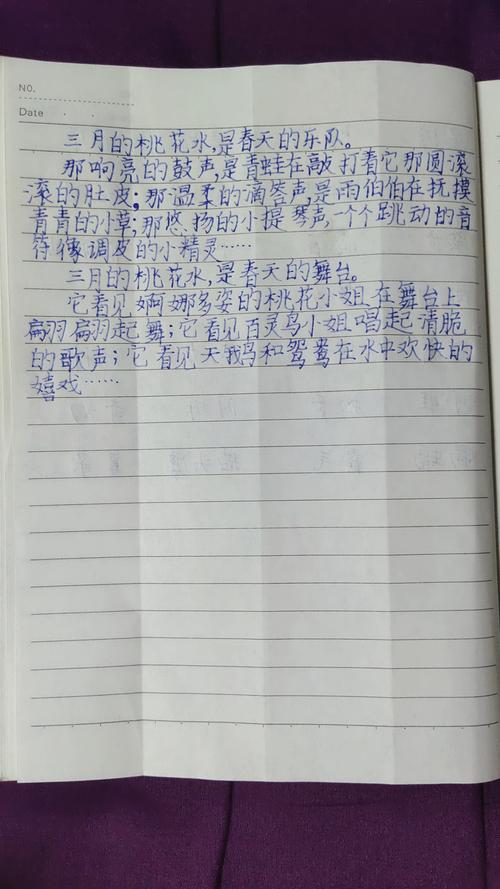 NO.
Date
三月的桃花水,是春天的乐队。
那响亮的鼓声,是青蛙在敲打着它那圆滚
滚的肚皮;那温柔的滴答声,是雨伯伯在抚摸
青青的小草;那悠扬的小提琴声,一个个跳动的音
符像调皮的小精灵……
三月的桃花水,是春天的舞台。
它看见婀娜多姿的桃花小姐在舞台上
翩翩起舞;它看见百灵鸟小姐唱起清脆
的歌声;它看见天鹅和鸳鸯在水中欢快的
嬉戏……